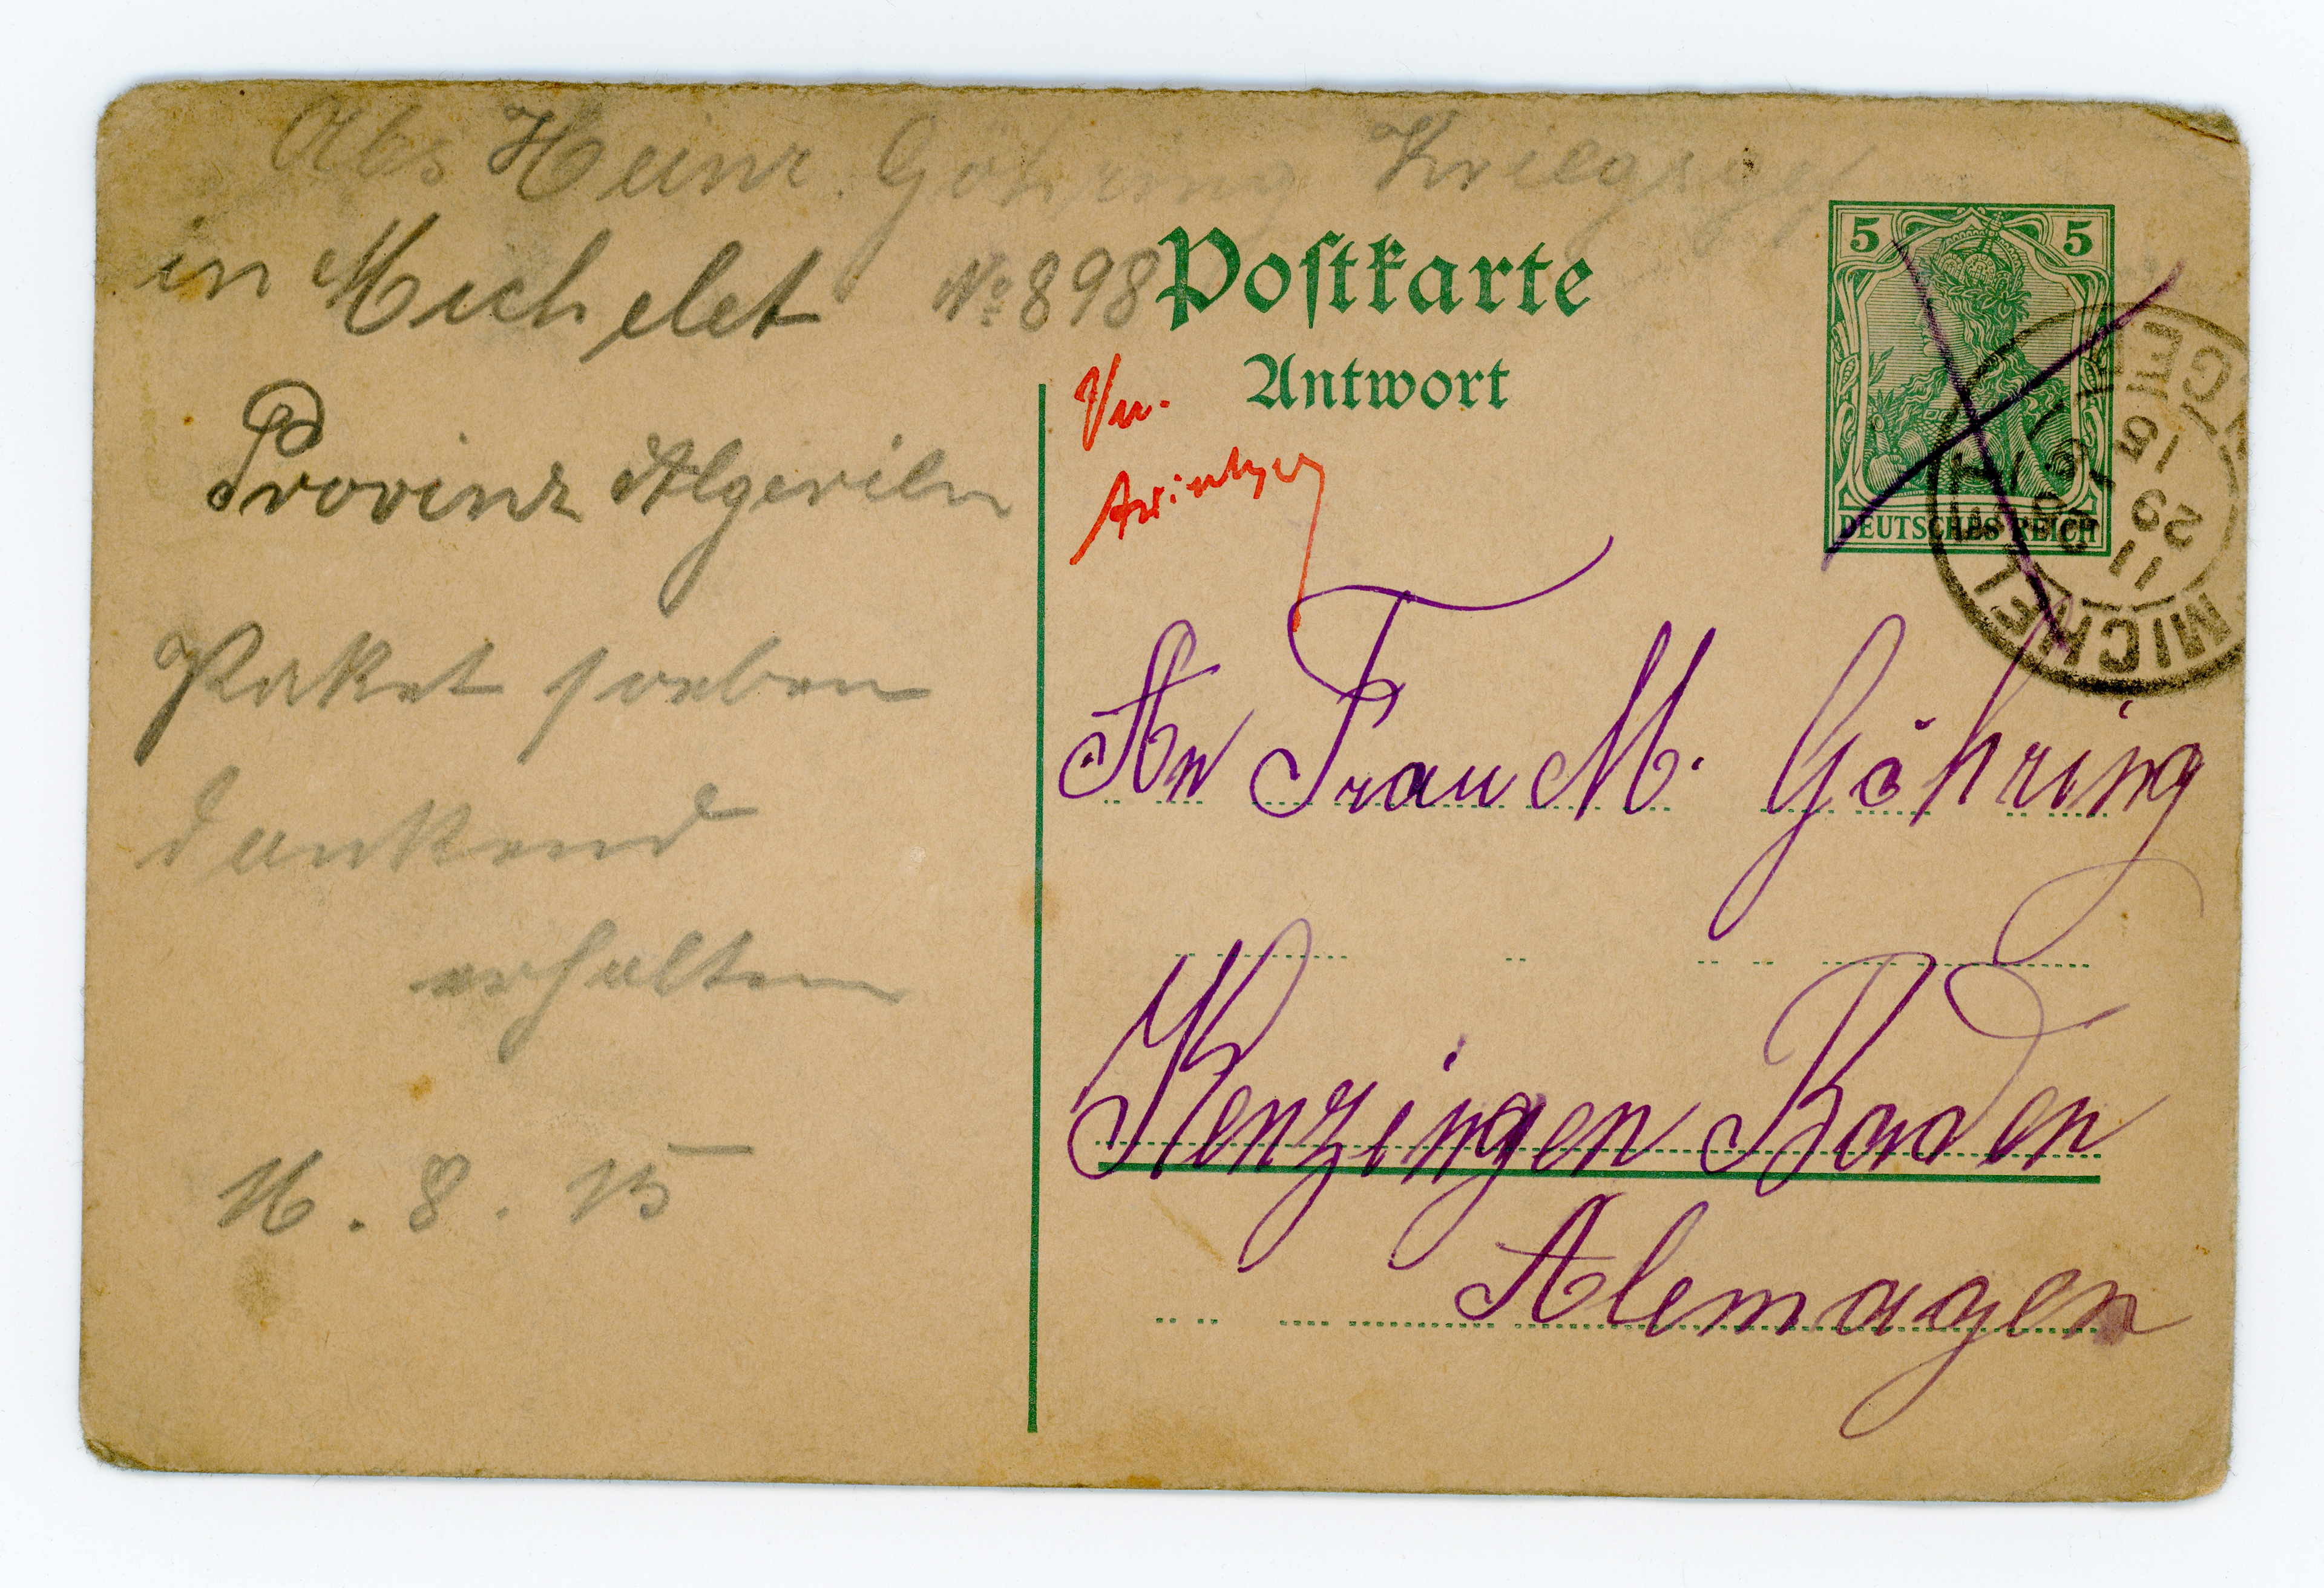 Abs Heinr. Göhring Kriegsgef
in Michelet No 898
Provinz Algerien
Paket soeben
dankend
erhalten
16. 8. 15
Postkarte
Antwort
Vu.
5 5
DEUTSCHES REICH
MICHELET
11
29 8
15
ALGER
An Frau M. Göhring
Kenzingen Baden
Alemagen